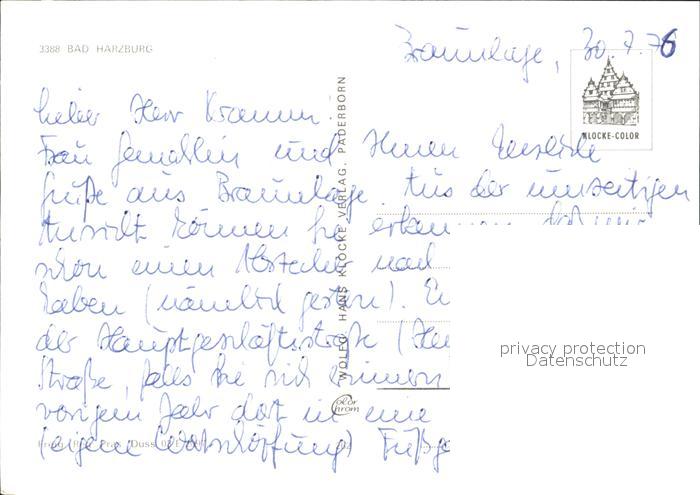 3388 BAD HARZBURG
Braunlage, 30.7.76
KLOCKE-COLOR
Lieber Herr Kramm.
Frau Gemahlin und Ihnen herzliche
Grüße aus Braunlage. Aus der umseitigen
Ansicht können Sie erkennen, daß wir
schon einen Abstecher nach
haben (nämlich gestern).
der Hauptgeschäftsstraße
Straße, falls Sie sich erinnern
vorigem Jahr dort in eine
(eigene Wortschöpfung) Fußg
WOLFG. HANS KLOCKE VERLAG, PADERBORN
Color chrom
privacy protection
Datenschutz